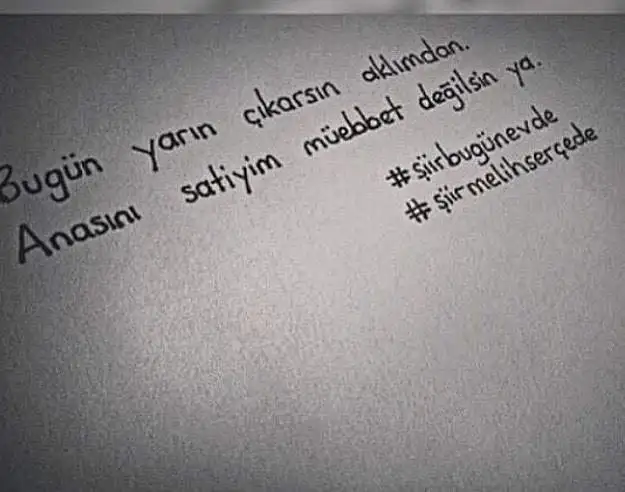 Bugün yarın çıkarsın aklımdan.
Anasını satiyim müebbet değilsin ya.
#şiirbugünevde
#şiirmelihserçede